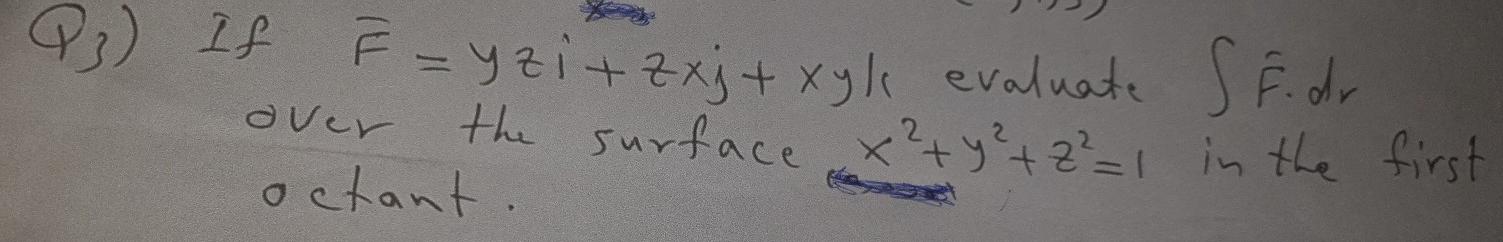 Q3) If F̅ = yzi + zxj + xyk evaluate ∫ F̅.dr
over the surface x²+y²+z²=1 in the first
octant.